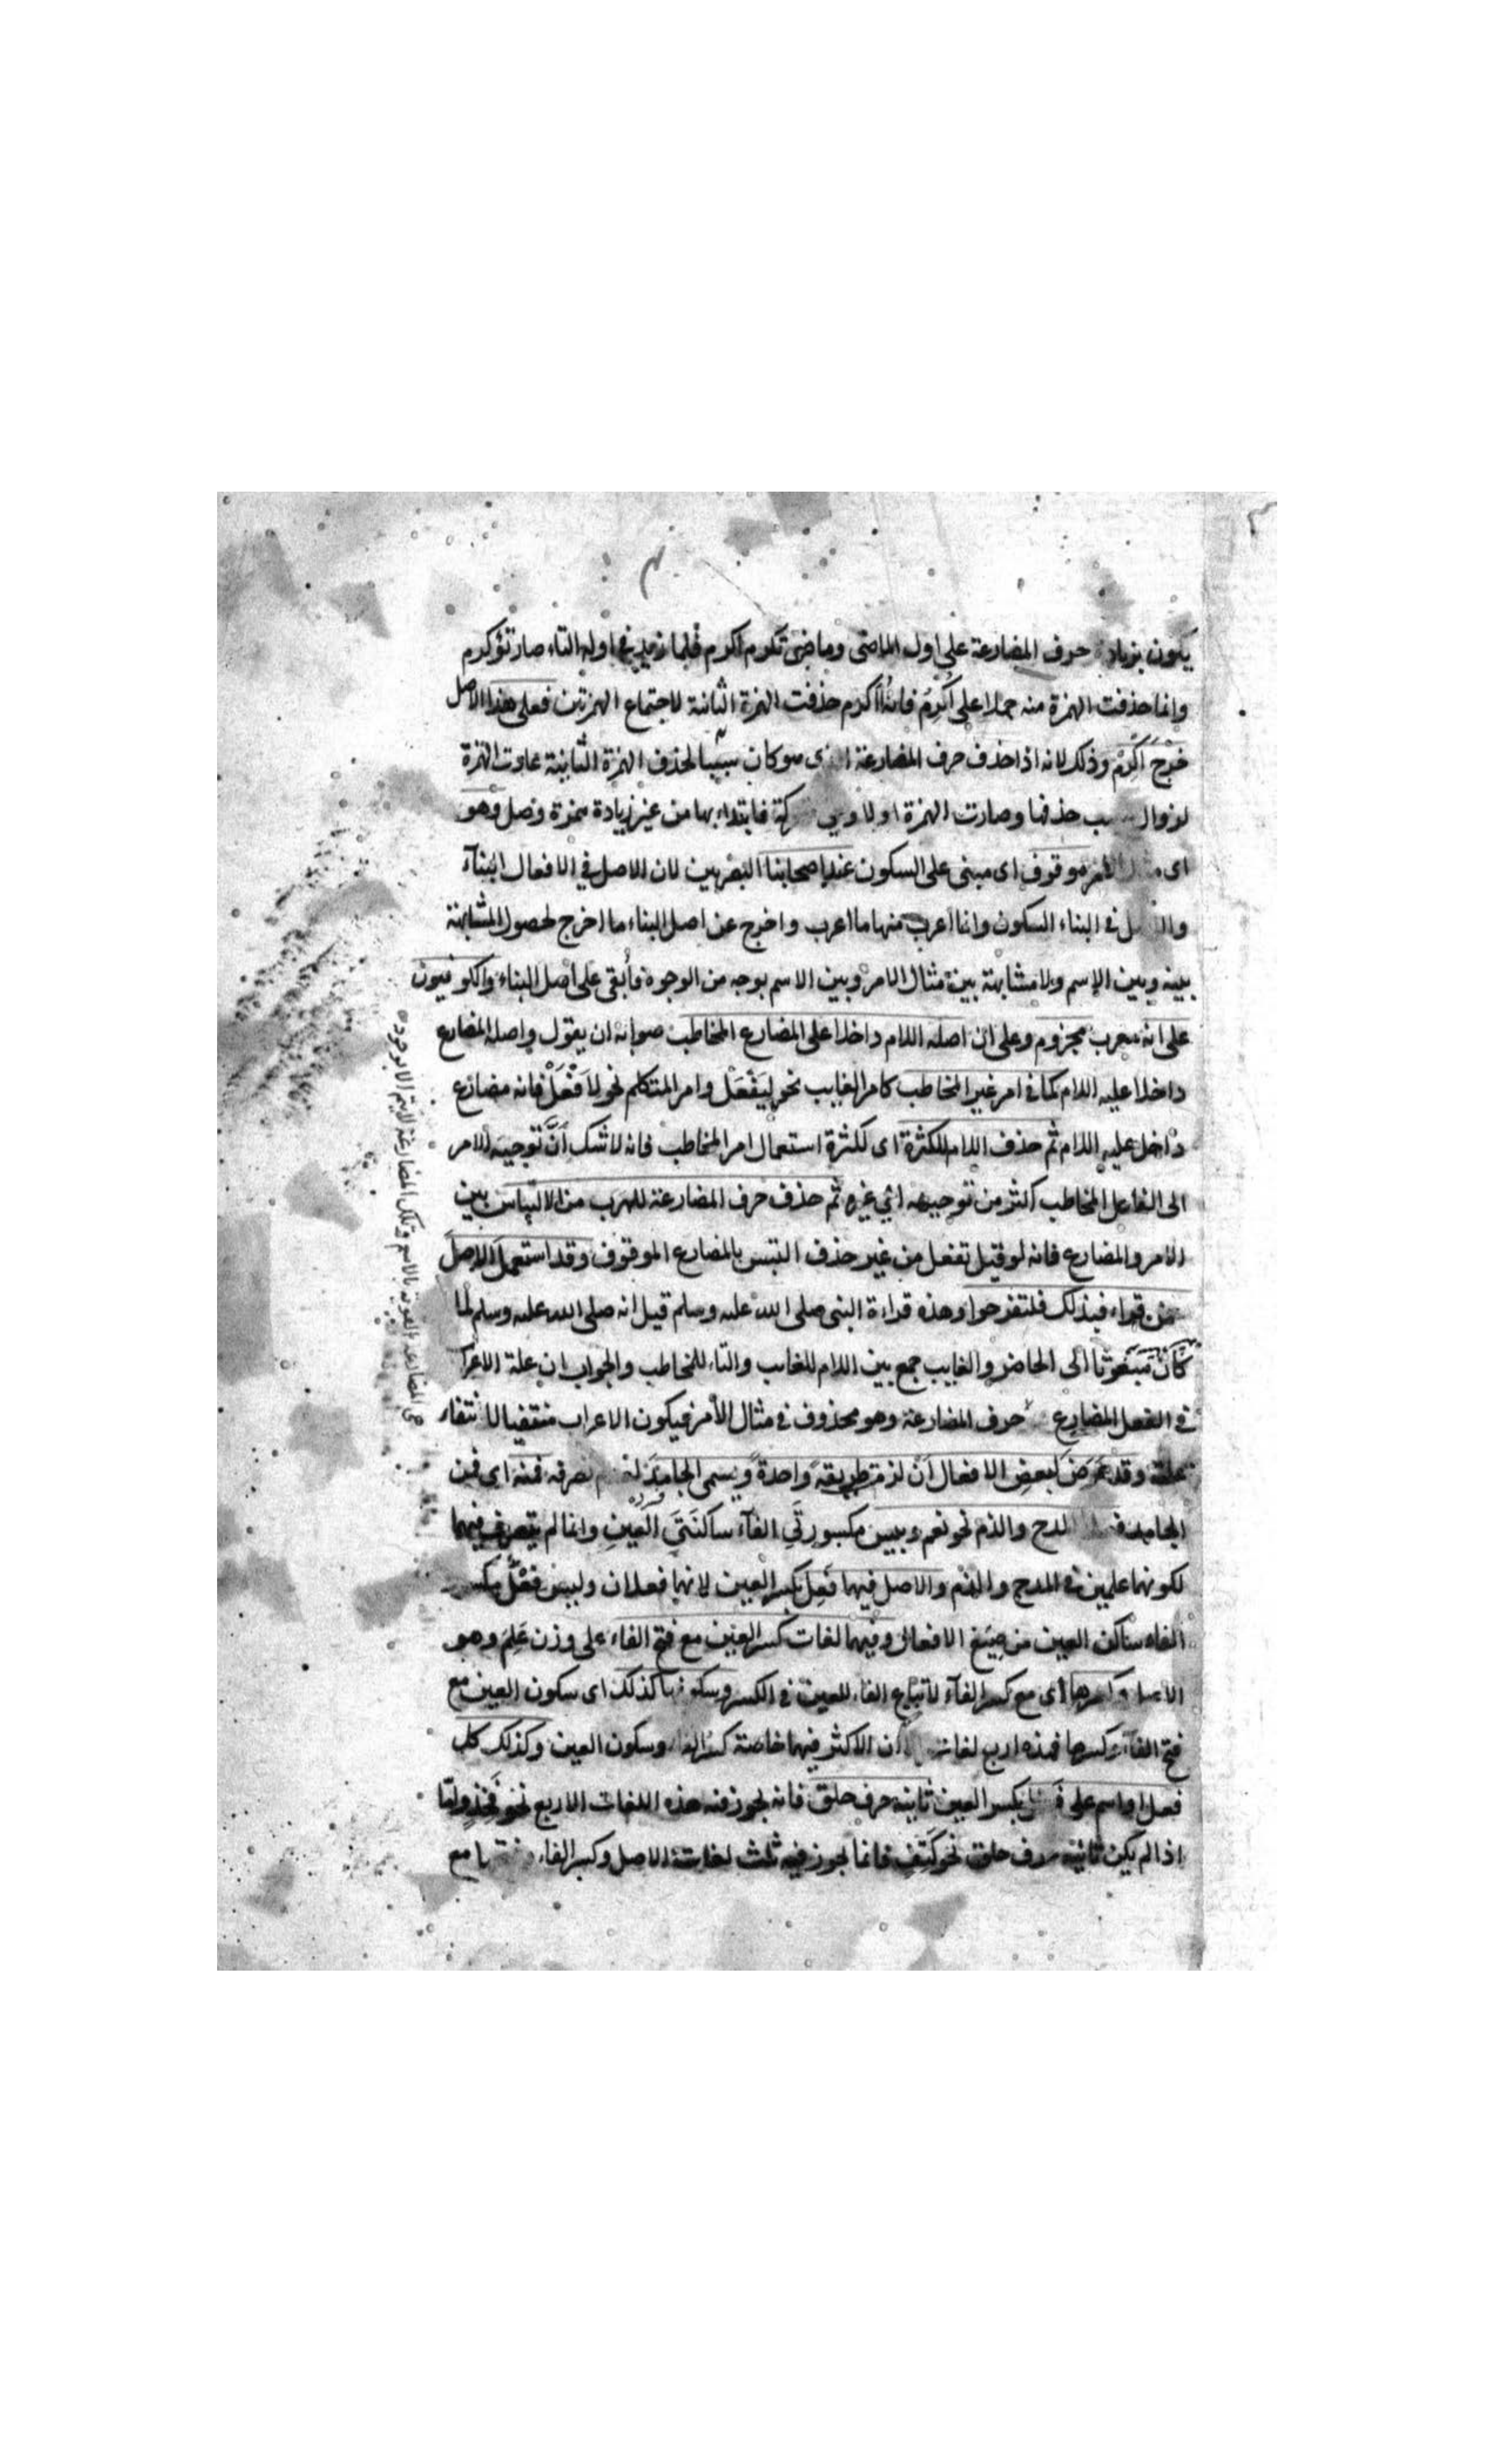 يكون بزيادة حرف المضارعة على اول الماضى وماضى تكرم اكرم فلما زيد فى اوله التاء صار تؤكرم
وانما حذفت الهمزة منه حملا على اُكرِمُ فانه أأكرم حذفت الهمزة الثانية لاجتماع الهمزتين فعلى هذا الاصل
خرج اَكرِمْ وذلك لانه اذا حذف حرف المضارعة الذى هو كان سببا لحذف الهمزة الثانية عادت الهمزة
لزوال سبب حذفها وصارت الهمزة اولا وهى متحركة فابتداء بها من غير زيادة همزة وصل وهو
اى مثال الامر موقوف اى مبنى على السكون عند اصحابنا البصريين لان الاصل فى الافعال البنآء
والاصل فى البناء السكون وانما اعرب منها ما اعرب واخرج عن اصل البناء ما اخرج لحصول المشابهة
بينه وبين الاسم ولا مشابهة بين مثال الامر وبين الاسم بوجه من الوجوه فأبقى على اصل البناء والكوفيون
على انه معرب مجزوم وعلى ان اصله اللام داخلا على المضارع المخاطب صوابه ان يقول واصله المضارع
داخلا عليه اللام كما فى امر غير المخاطب كامر الغايب نحو ليَفْعَلْ وامر المتكلم نحو لِاَفْعَلْ فانه مضارع
داخل عليه اللام ثم حذف اللام للكثرة اى لكثرة استعمال امر المخاطب فانه لا شك أنَّ توجيه الامر
الى الفاعل المخاطب اكثر من توجيهه الى غيره ثم حذف حرف المضارعة للهرب من الالتباس بين
الامر والمضارع فانه لو قيل تفعل من غير حذف التبس بالمضارع الموقوف وقد استعمل الاصل
من قراء فبذلك فلتفرحوا وهذه قراءة النبى صلى الله عليه وسلم قيل انه صلى الله عليه وسلم لما
كان مبعوثا الى الحاضر والغايب جمع بين اللام للغايب والتاء للمخاطب والجواب ان علة الاعراب
فى الفعل المضارع حرف المضارعة وهو محذوف فى مثال الأمر فيكون الاعراب منتفيا لانتفاء
علته وقد عرض لبعض الافعال أن لزمت طريقة واحدة ويسمى الجامد لعدم تصرفه فمنه اى فمن
الجامد المدح والذم نحو نعم وبيس مكسورتَي الفآء ساكنَتَي العين وانما لم يتصرف فيهما
لكونهما علمين فى المدح والذم والاصل فيهما فَعِلَ بكسر العين لانهما فعلان وليس فِعْلَ مكسور
الفاء ساكن العين من صيغ الافعال وفيهما لغات كسر العين مع فتح الفاء على وزن عَلِمَ وهو
الاصل وكسرها اى مع كسر الفآء لاتباع الفاء للعين فى الكسر وسكونها كذلك اى سكون العين مع
فتح الفآء وكسرها فهذه اربع لغات ان الاكثر فيهما خاصة كسر الفاء وسكون العين وكذلك كل
فعل او اسم على فَعِل بكسر العين ثانيه حرف حلق فانه يجوز فيه هذه اللغات الاربع نحو فَخِذ وامّا
اذا لم يكن ثانيه حرف حلق نحو كَتِف فانما يجوز فيه ثلث لغات الاصل وكسر الفاء وفتحها مع